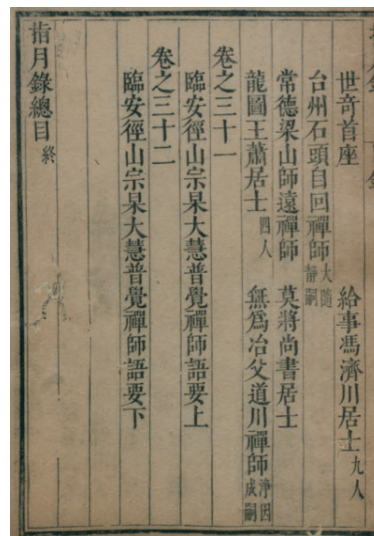 世奇首座　給事馮濟川居士九人
台州石頭自回禪師大隨靜嗣
常德梁山師遠禪師　莫將尚書居士
龍圖王蕭居士四人　無爲冶父道川禪師淨因成嗣
卷之三十一
臨安徑山宗杲大慧普覺禪師語要上
卷之三十二
臨安徑山宗杲大慧普覺禪師語要下
指月錄總目終